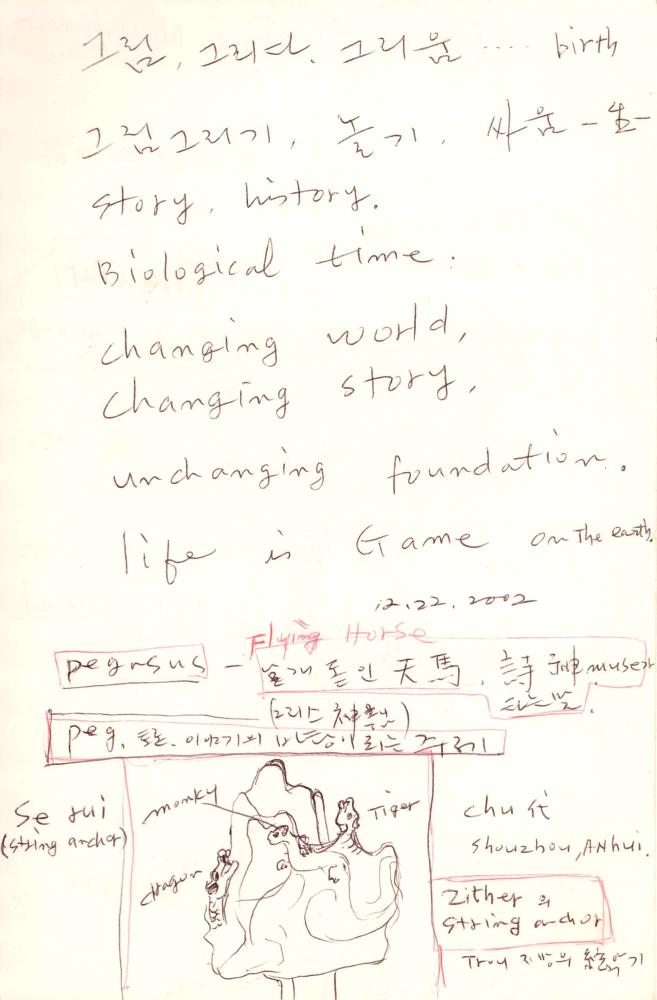 그림, 그리다, 그리움 .... birth
그림그리기, 놀기, 싸움 - 生 -
story, history.
Biological time.
changing world,
changing story,
unchanging foundation.
life is Game on The earth.
12.22.2002
Flying Horse
pegasus - 날개 돋인 天馬, 詩神 muse가
타는 말.
(그리스神話)
peg, 토론. 이야기의
monky
Tiger
dragon
Se rui
(string anchor)
chu 代
Shouzhou, ANhui.
Zither 의
string anchor
지방의